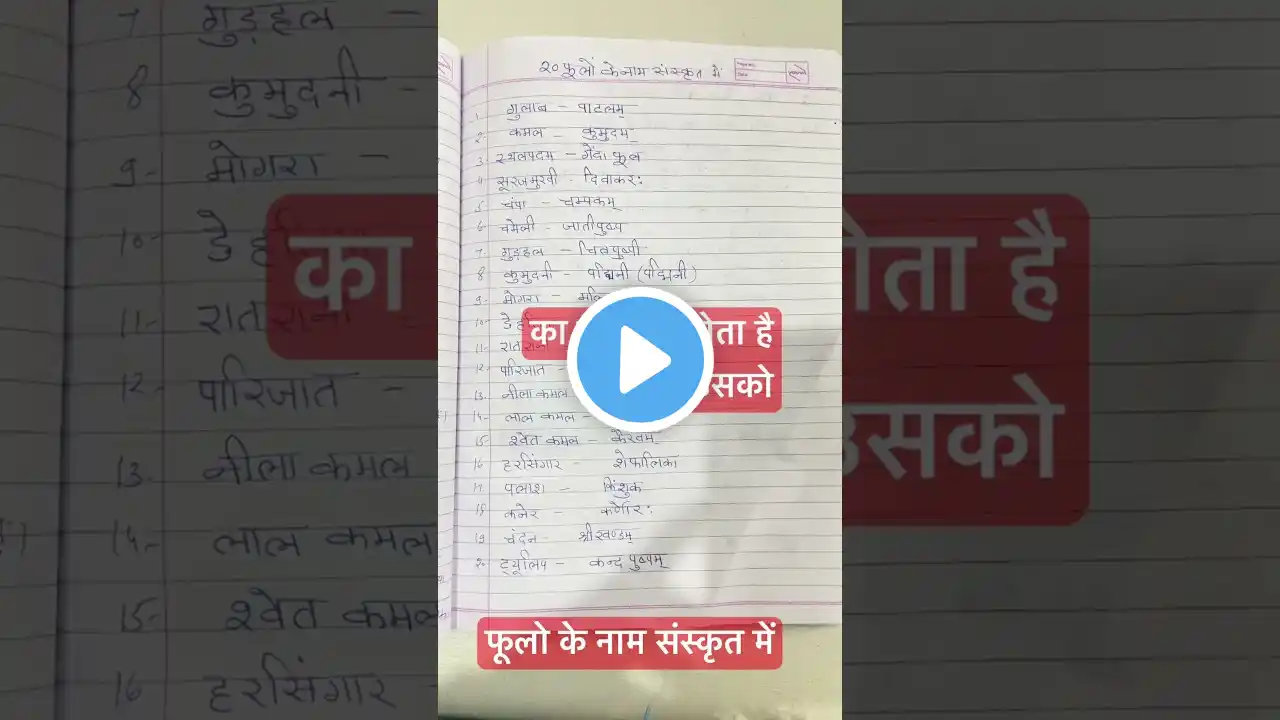 २० फूलों के नाम संस्कृत में
1. गुलाब - पाटलम्
2. कमल - कुमुदम्
3. स्थलपदम - गेंदा फूल
4 सूरजमुखी - दिवाकर:
5. चंपा - चम्पकम्
6. चमेली - जातीपुष्प
7. गुड़हल -
8 कुमुदनी - पद्मिनी (पद्मिनी)
9. मोगरा -
10-
11- रात
12- पारिजात -
13. नीला कमल
14- लाल कमल -
15- श्वेत कमल - कैरवम्
16 हरसिंगार - शेफालिका
17 पलाश - किंशुक
18 कनेर -
19 चंदन - श्रीखण्डम्
ट्यूलिप - कन्द पुष्पम्
का
ता है
सको
फूलो के नाम संस्कृत में
7 गुड़हल -
8 कुमुदनी -
9- मोगरा -
10-
11- रात
12- पारिजात -
13- नीला कमल
14- लाल कमल
15- श्वेत कमल
16 हरसिंगार -
का
ता है
सको